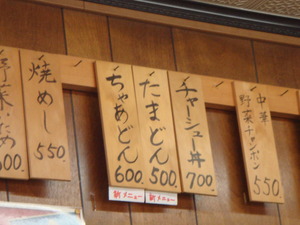 野菜いため
600
焼めし
550
ちゃあどん
600.
新メニュー
たまどん
500.
新メニュー
チャーシュー丼
700
中華
野菜チャンポン
550